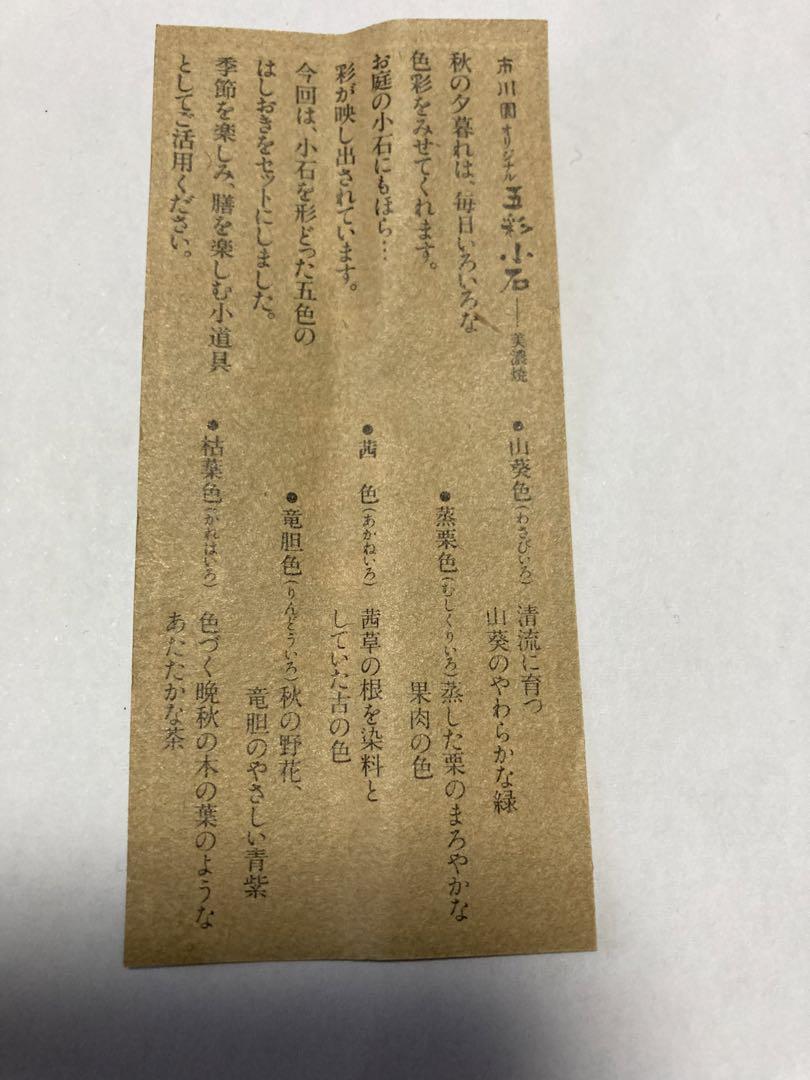 市川園オリジナル 五彩小石――美濃焼
秋の夕暮れは、毎日いろいろな
色彩をみせてくれます。
お庭の小石にもほら…
彩が映し出されています。
今回は、小石を形どった五色の
はしおきをセットにしました。
季節を楽しみ、膳を楽しむ小道具
としてご活用ください。
●山葵色(わさびいろ) 清流に育つ
山葵のやわらかな緑
●蒸栗色(むしくりいろ)蒸した栗のまろやかな
果肉の色
●茜 色(あかねいろ) 茜草の根を染料と
していた古の色
●竜胆色(りんどういろ)秋の野花、
竜胆のやさしい青紫
●枯葉色(かれはいろ) 色づく晩秋の木の葉のような
あたたかな茶